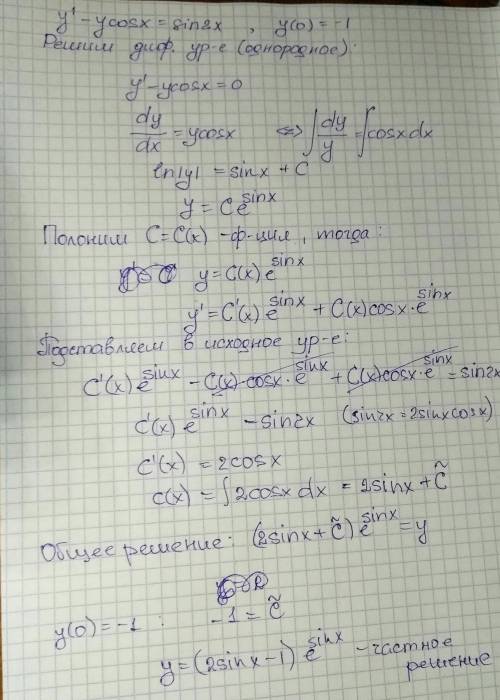 y' - ycosx = sin2x , y(0) = -1
Решим диф. ур-е (однородное):
y' - ycosx = 0
dy/dx = ycosx <=> ∫ dy/y = ∫ cosx dx
ln|y| = sinx + C
y = Ce^sinx
Положим C = C(x) - ф-ция, тогда:
y = C(x) e^sinx
y' = C'(x) e^sinx + C(x) cosx · e^sinx
Подставляем в исходное ур-е:
C'(x) e^sinx - C(x) · cosx · e^sinx + C(x) cosx · e^sinx = sin2x
C'(x) e^sinx - sin2x (sin2x = 2sinxcosx)
C'(x) = 2cosx
C(x) = ∫ 2cosx dx = 2sinx + C̃
Общее решение: (2sinx + C̃) e^sinx = y
y(0) = -1 : -1 = C̃
y = (2sinx - 1) e^sinx - частное
решение